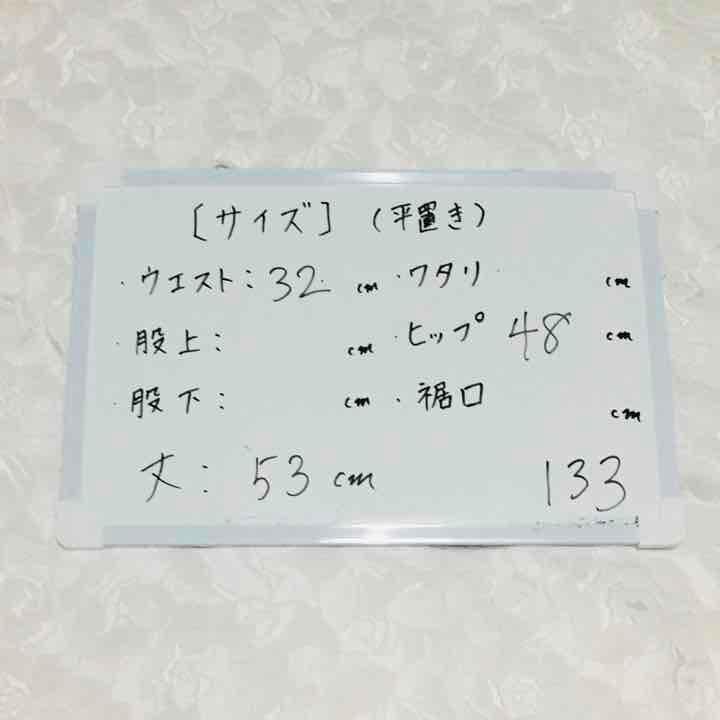 [サイズ] (平置き)
・ウエスト: 32 cm ・ワタリ cm
・股上: cm ・ヒップ 48 cm
・股下: cm ・裾口 cm
丈: 53 cm 133